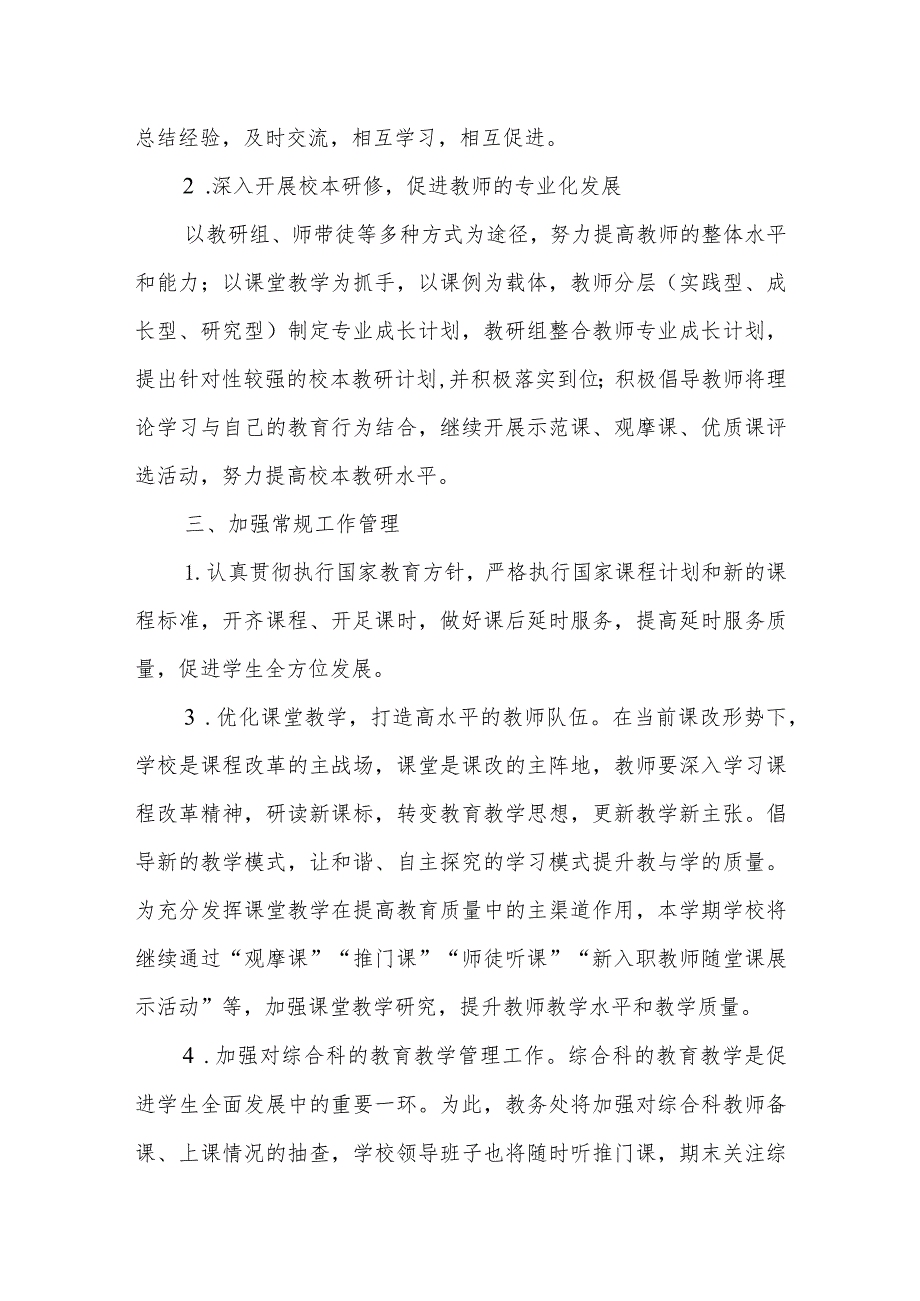 总结经验，及时交流，相互学习，相互促进。
2 .深入开展校本研修，促进教师的专业化发展
以教研组、师带徒等多种方式为途径，努力提高教师的整体水平
和能力；以课堂教学为抓手，以课例为载体，教师分层（实践型、成
长型、研究型）制定专业成长计划，教研组整合教师专业成长计划，
提出针对性较强的校本教研计划,并积极落实到位；积极倡导教师将理
论学习与自己的教育行为结合，继续开展示范课、观摩课、优质课评
选活动，努力提高校本教研水平。
三、加强常规工作管理
1.认真贯彻执行国家教育方针，严格执行国家课程计划和新的课
程标准，开齐课程、开足课时，做好课后延时服务，提高延时服务质
量，促进学生全方位发展。
3 .优化课堂教学，打造高水平的教师队伍。在当前课改形势下，
学校是课程改革的主战场，课堂是课改的主阵地，教师要深入学习课
程改革精神，研读新课标，转变教育教学思想，更新教学新主张。倡
导新的教学模式，让和谐、自主探究的学习模式提升教与学的质量。
为充分发挥课堂教学在提高教育质量中的主渠道作用，本学期学校将
继续通过“观摩课”“推门课”“师徒听课”“新入职教师随堂课展
示活动”等，加强课堂教学研究，提升教师教学水平和教学质量。
4 .加强对综合科的教育教学管理工作。综合科的教育教学是促
进学生全面发展中的重要一环。为此，教务处将加强对综合科教师备
课、上课情况的抽查，学校领导班子也将随时听推门课，期末关注综